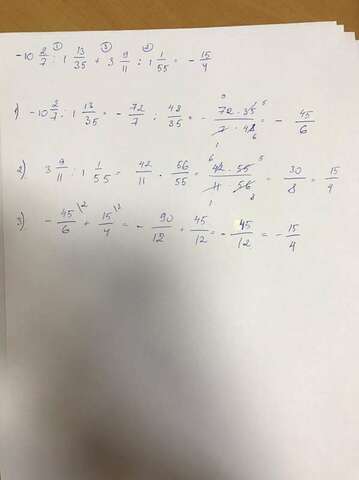 ① ③ ②
-10 2/7 : 1 13/35 + 3 9/11 : 1 1/55 = - 15/4
1) -10 2/7 : 1 13/35 = - 72/7 : 48/35 = - 72 · 35 / 7 · 48 = - 45/6
2) 3 9/11 : 1 1/55 = 42/11 · 56/55 = 42 · 55 / 11 · 56 = 30/8 = 15/4
3) - 45/6 \2 + 15/4 \2 = - 90/12 + 45/12 = - 45/12 = - 15/4